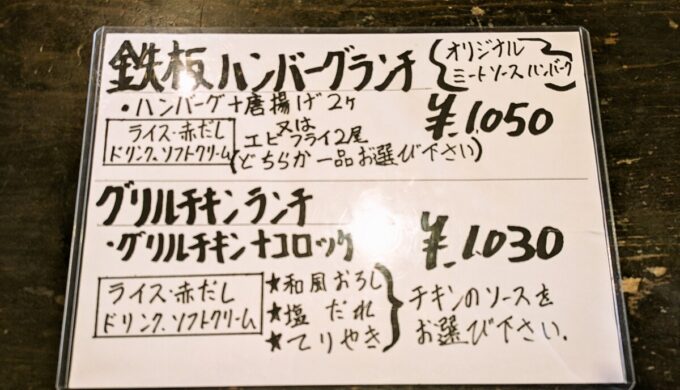 鉄板ハンバーグランチ
オリジナル
ミートソースハンバーグ
・ハンバーグ+唐揚げ2ヶ
¥1,050
又は
エビフライ2尾
(どちらか一品お選び下さい)
ライス・赤だし
ドリンク、ソフトクリーム
グリルチキンランチ
・グリルチキン+コロッケ
¥1,030
ライス・赤だし
ドリンク、ソフトクリーム
★和風おろし
★塩だれ
★てりやき
チキンのソースを
お選び下さい.